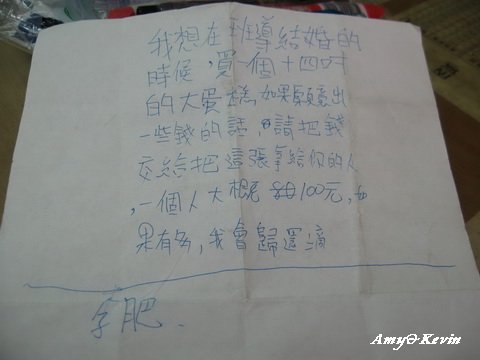 我想在班導結婚的
時候,買一個十四吋
的大蛋糕,如果願意出
一些錢的話,請把錢
交給把這張拿給你的人
,一個人大概100元,如
果有多,我會歸還滴
肥.
Amy∂Kevin